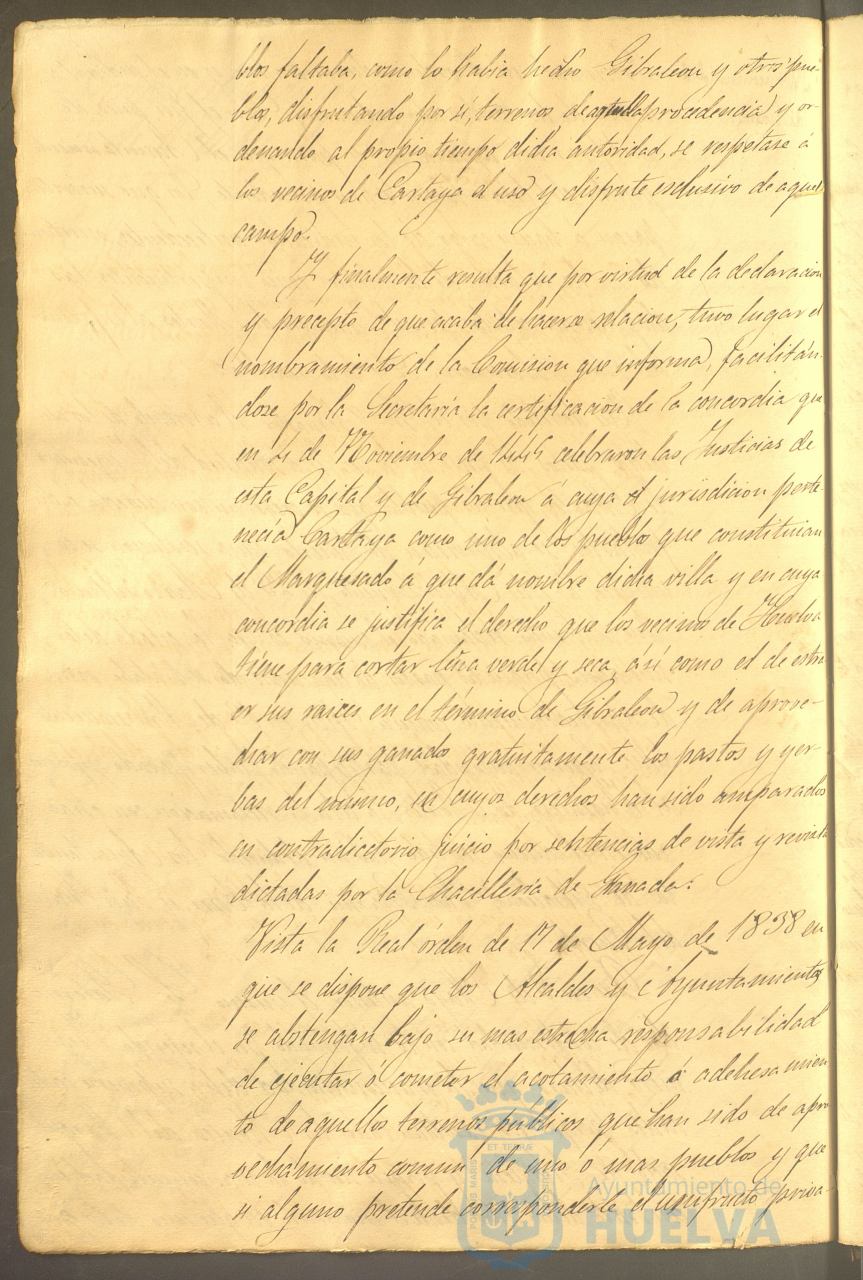 blos faltaba, como lo habia hecho Gibraleon y otros pue-
blos, disfrutando por sí, terrenos de aquella procedencia y or-
denando al propio tiempo dicha autoridad, se respetase á
los vecinos de Cartaya el uso y disfrute esclusivo de aquel
campo.
Y finalmente resulta que por virtud de la declaracion
y precepto de que acaba de hacerse relacion, tuvo lugar el
nombramiento de la Comision que informa, facilitán-
dose por la Secretaría la certificacion de la concordia que
en de Noviembre de celebraron las Justicias de
esta Capital y de Gibraleon á cuya jurisdicion perte-
necía Cartaya como uno de los pueblos que constituian
el Marquesado á que dá nombre dicha villa y en cuya
concordia se justifica el derecho que los vecinos de Huelva
tiene para cortar leña verde y seca, así como el de estra-
er sus raices en el término de Gibraleon y de aprove-
char con sus ganados gratuitamente los pastos y yer-
bas del mismo, en cuyos derechos han sido amparados
en contradicctorio juicio por sentencias de vista y revista
dictadas por la Chacilleria de Granada.
Vista la Real órden de 17 de Mayo de 1838 en
que se dispone que los Alcaldes y Ayuntamientos
se abstengan bajo su mas estrecha responsabilidad
de ejecutar ó cometer el acotamiento á adehesamien
to de aquellos terrenos públicos que han sido de apro
vechamiento comun de uno ó mas pueblos y que
si alguno pretende corresponderle el usufructo priva-
Ayuntamiento de
HUELVA